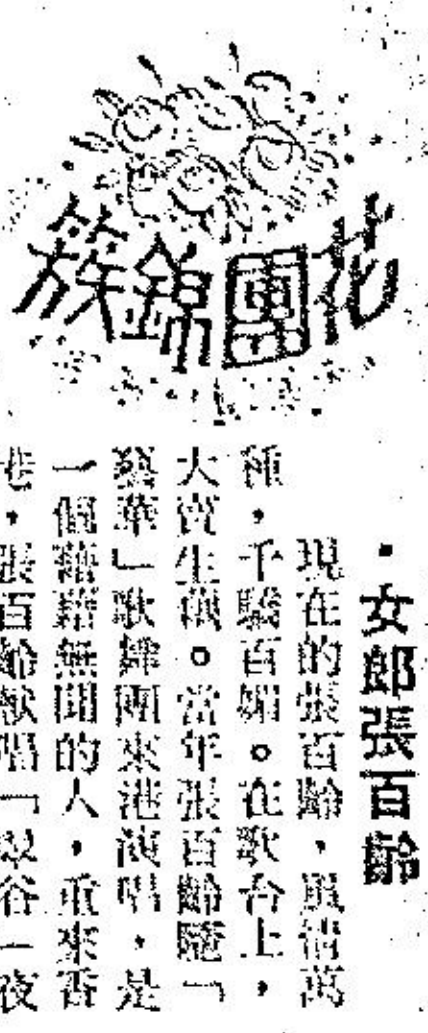 花團錦簇
・女郎張百齡
現在的張百齡，風情萬
種，千百媚。在歌台上，
大賣生藕。當年張百齡隨「
華」歌舞團來港演唱，是
一個藉藉無聞的人，重來香
港，張百齡獻唱「翠谷」夜